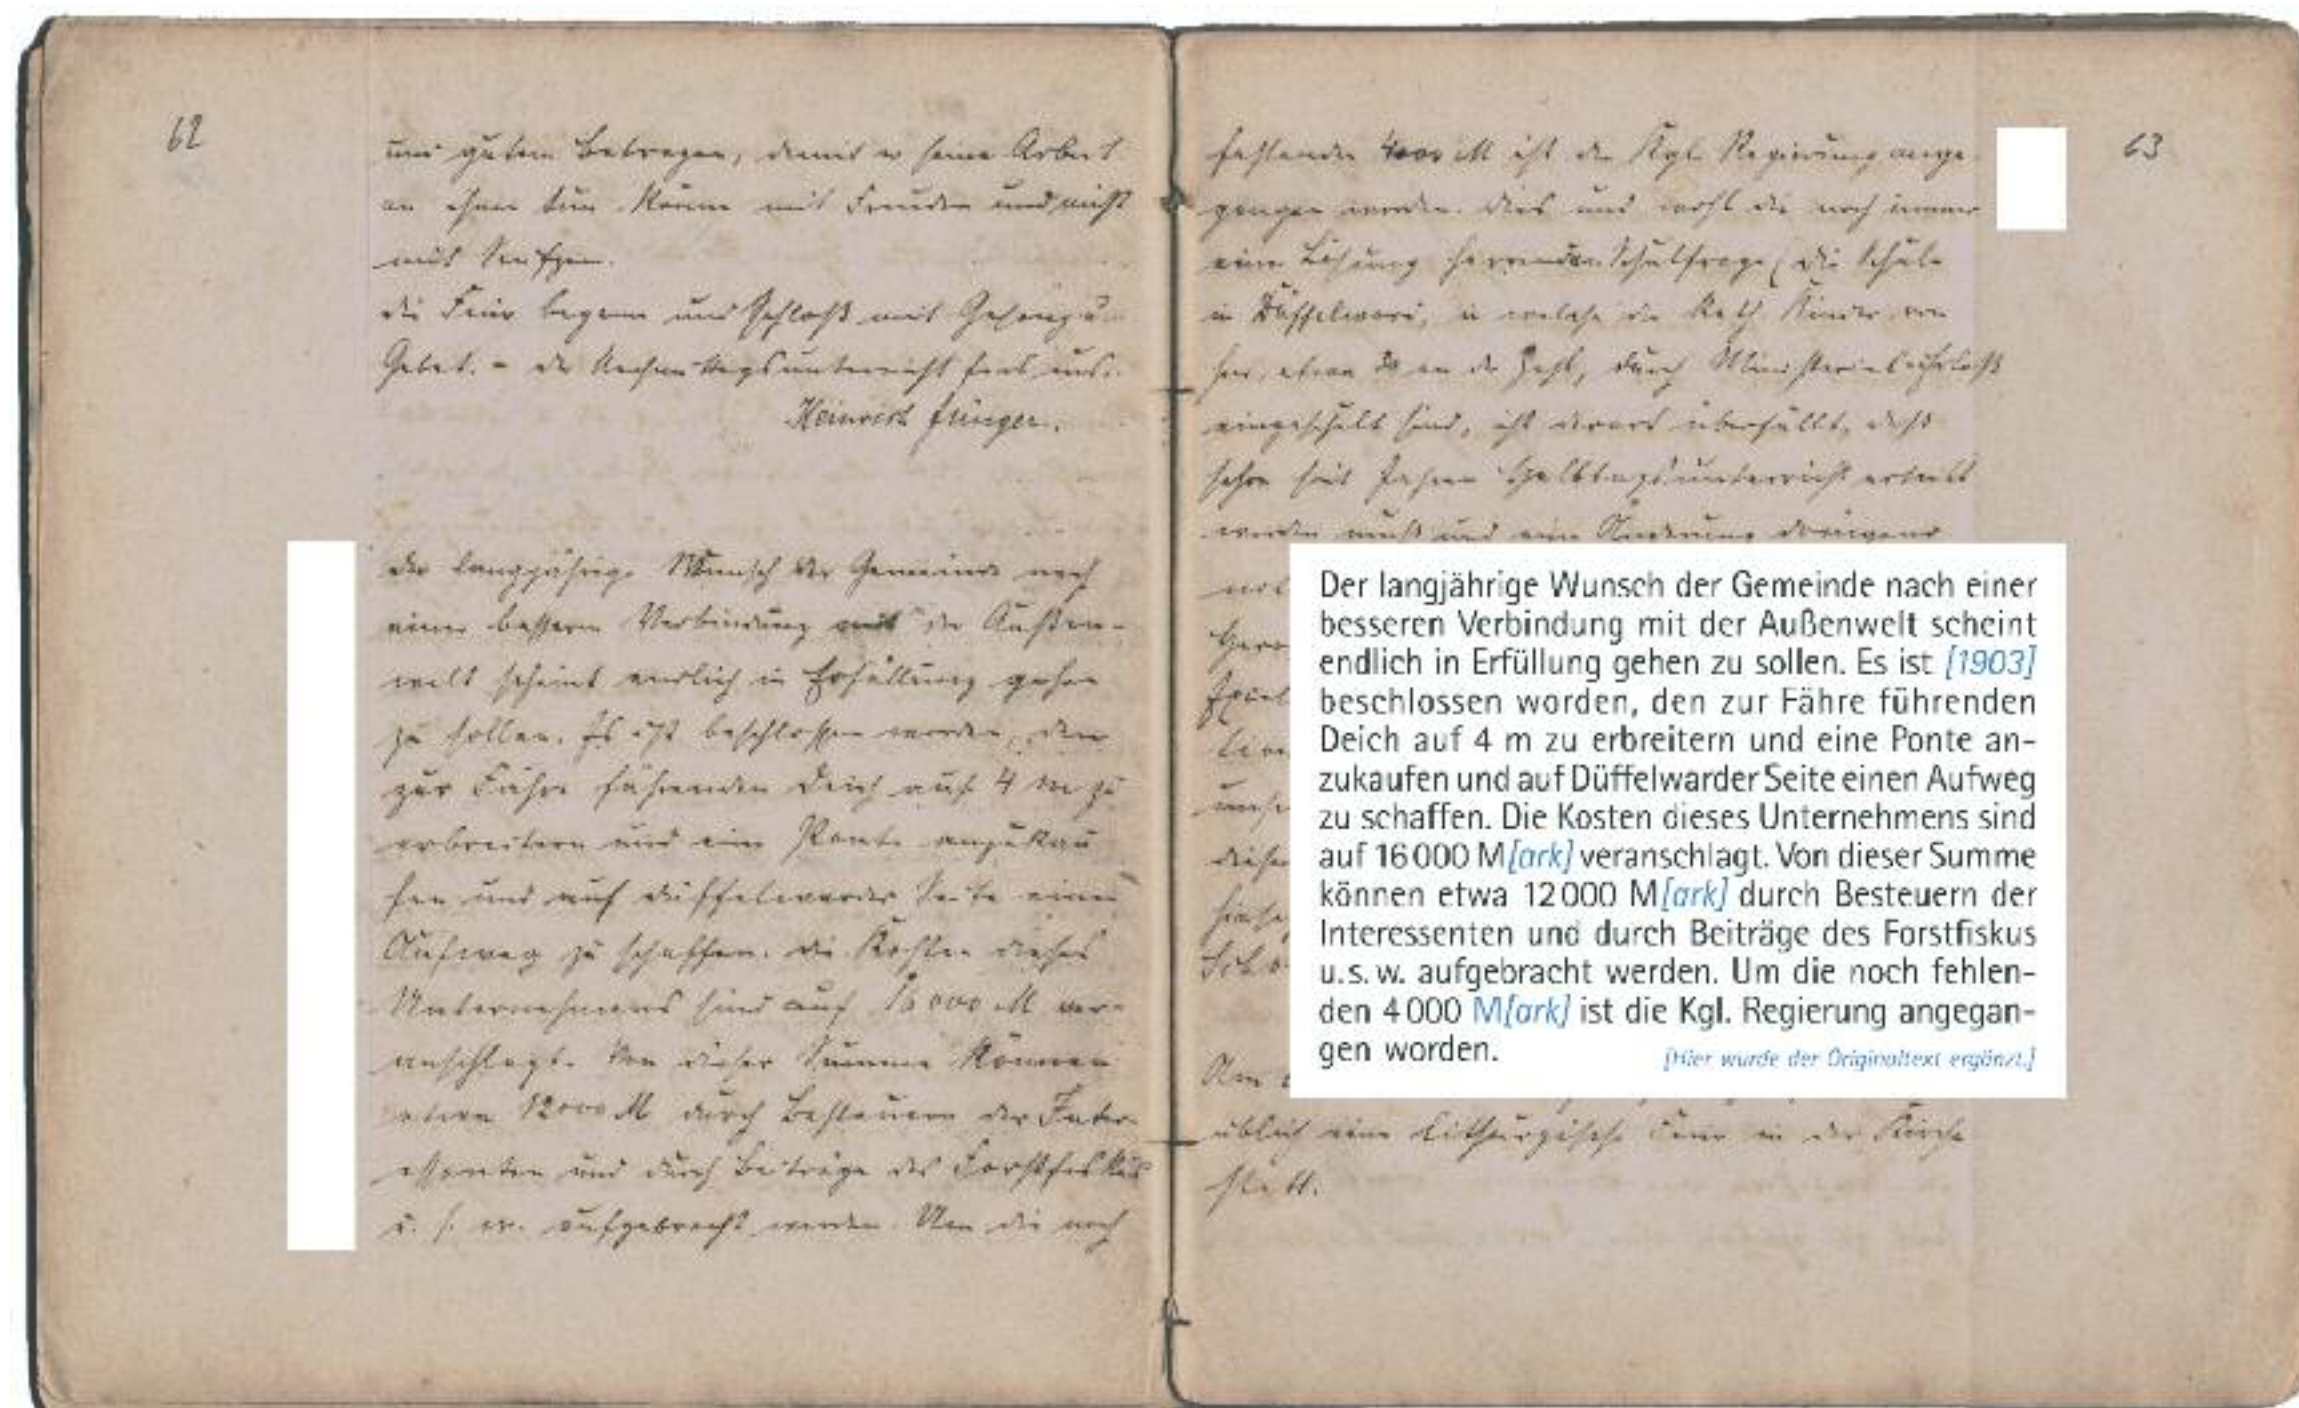 62
und gutem Betragen, damit er seine Arbeit
an ihnen tun könne mit Freuden und nicht
mit Seufzen.
Die Feier begann und schloß mit Gesang u.
Gebet. - Der Nachmittagsunterricht fiel aus.
Heinrich Jünger.
Der langjährige Wunsch der Gemeinde nach
einer bessern Verbindung mit der Außen-
welt scheint endlich in Erfüllung gehen
zu sollen. Es ist beschlossen worden, den
zur Fähre führenden Deich auf 4 m zu
erbreitern und eine Ponte anzukau
fen und auf Düffelwarder Seite einen
Aufweg zu schaffen. Die Kosten dieses
Unternehmens sind auf 16000 M ver-
anschlagt. Von dieser Summe können
etwa 12000 M durch Besteuern der Inter-
essenten und durch Beiträge des Forstfiskus
u. s. w. aufgebracht werden. Um die noch
63
fehlenden 4000 M ist die Kgl. Regierung ange-
gangen worden. Dies und wohl die noch immer
einer Lösung harrenden Schulfrage (die Schule
in Düffelward, in welche die kath. Kinder von
hier, etwa 30 an der Zahl, durch Ministerialerlaß
eingeschult sind, ist derart überfüllt, daß
schon seit Jahren Halbtagsunterricht erteilt
werden muß und eine Änderung dringend
Der langjährige Wunsch der Gemeinde nach einer
besseren Verbindung mit der Außenwelt scheint
endlich in Erfüllung gehen zu sollen. Es ist [1903]
beschlossen worden, den zur Fähre führenden
Deich auf 4 m zu erbreitern und eine Ponte an-
zukaufen und auf Düffelwarder Seite einen Aufweg
zu schaffen. Die Kosten dieses Unternehmens sind
auf 16000 M[ark] veranschlagt. Von dieser Summe
können etwa 12000 M[ark] durch Besteuern der
Interessenten und durch Beiträge des Forstfiskus
u.s.w. aufgebracht werden. Um die noch fehlen-
den 4000 M[ark] ist die Kgl. Regierung angegan-
gen worden.
[Hier wurde der Originaltext ergänzt.]
üblich eine liturgische Feier in der Kirche
statt.